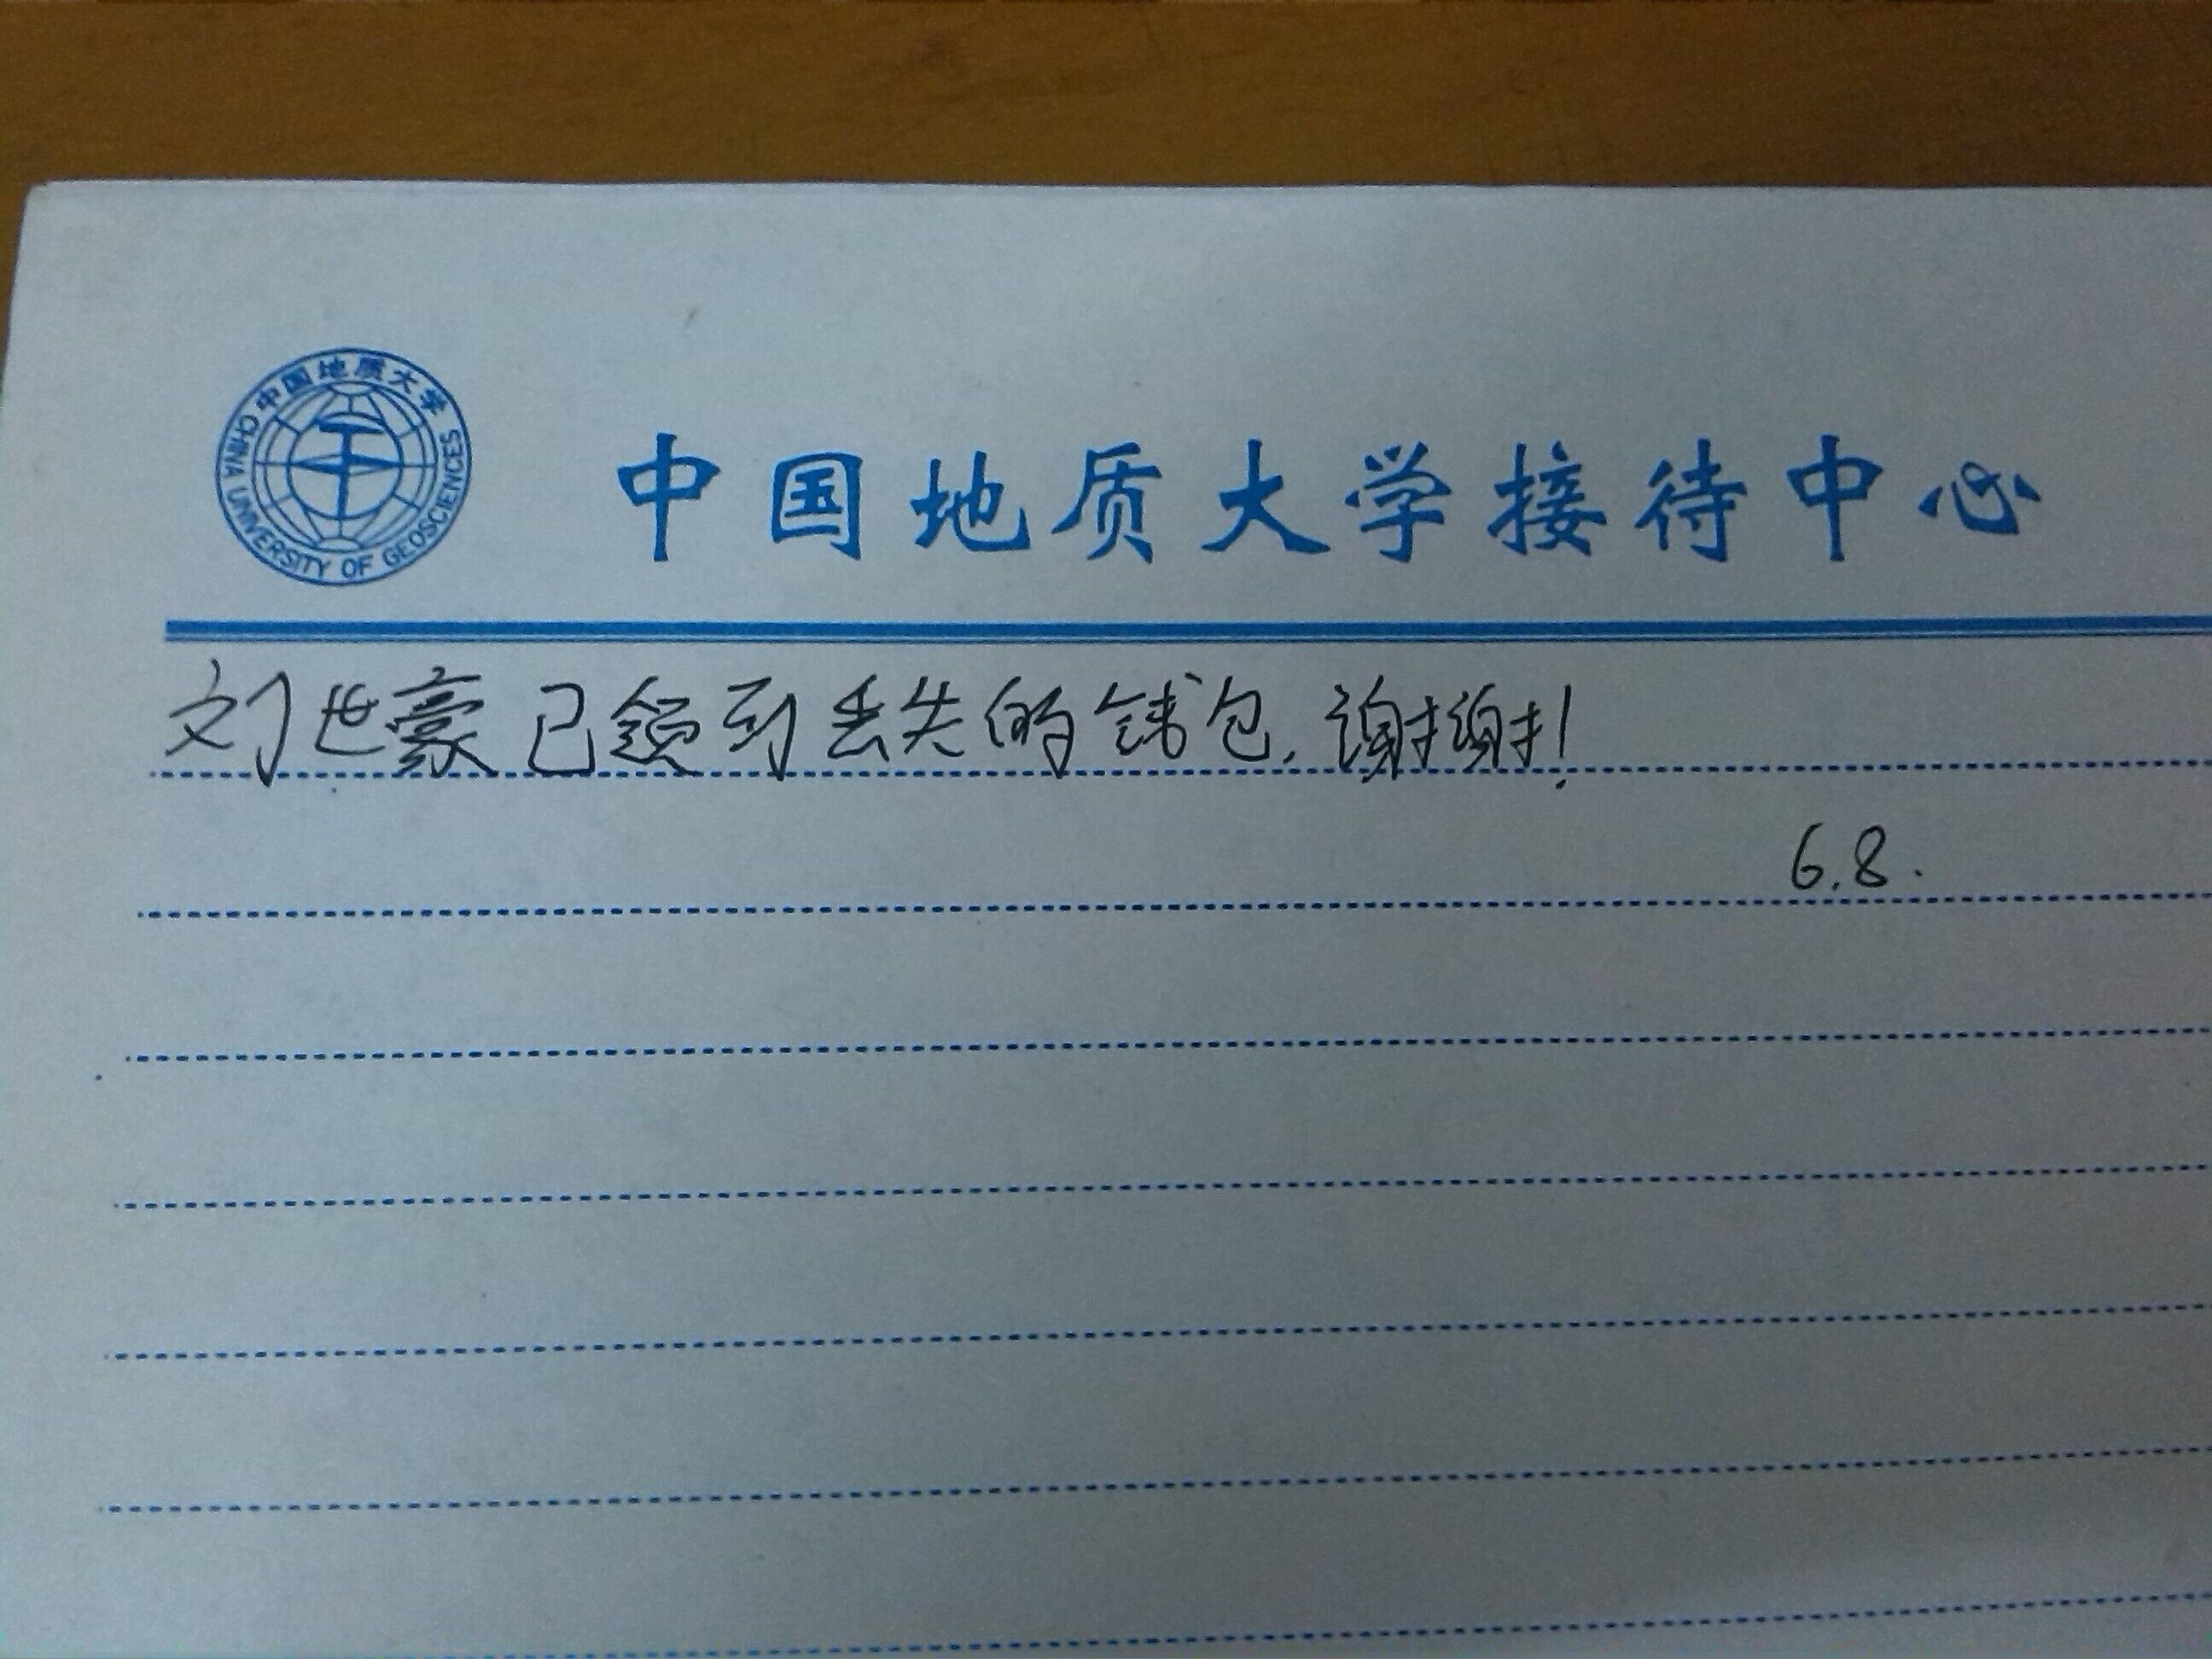 中国地质大学
CHINA UNIVERSITY OF GEOSCIENCES
中国地质大学接待中心
刘世豪已领到丢失的钱包,谢谢!
6.8.